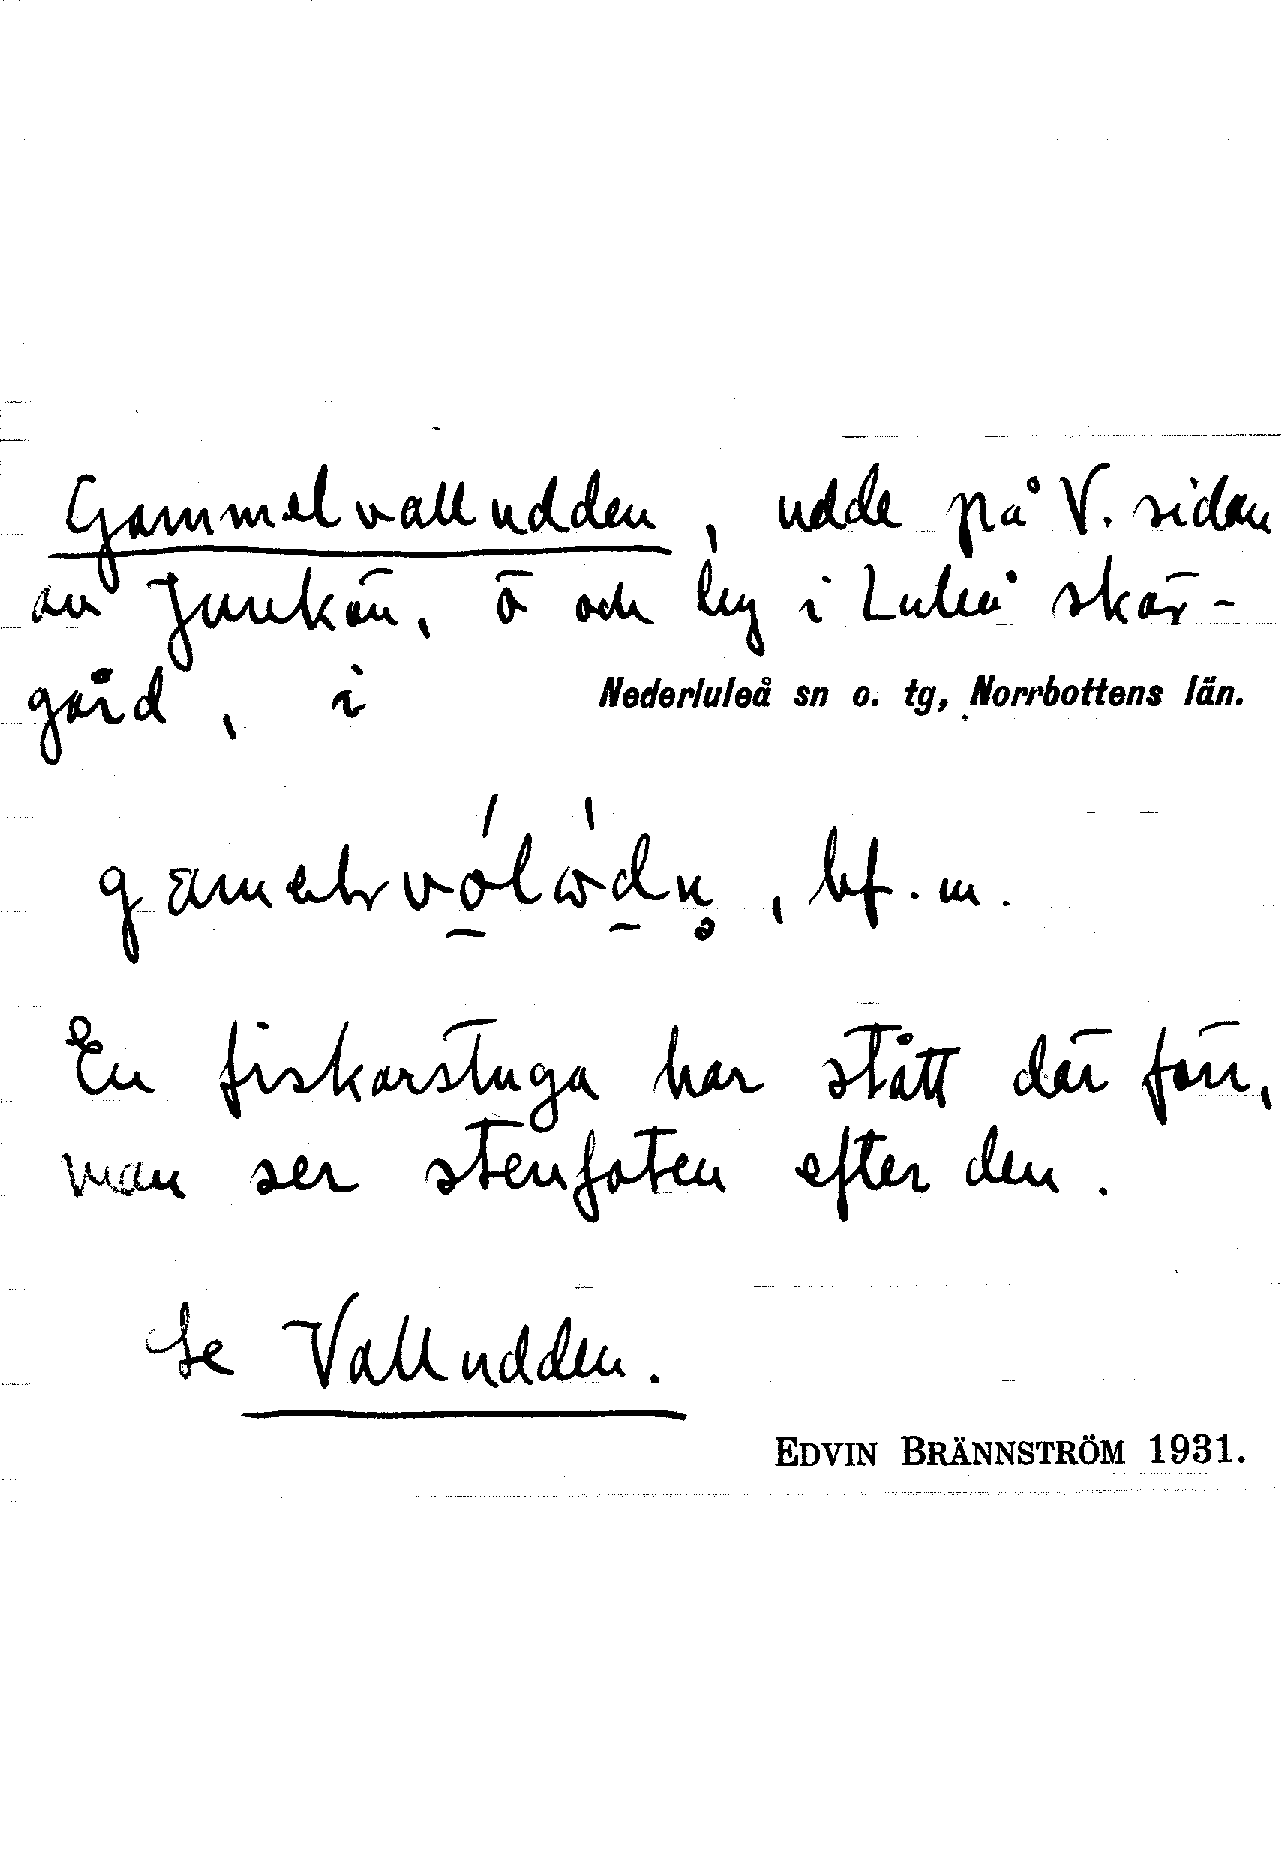 Gammelvalludden, udde på V. sidan
av Junkön, ö och by i Luleå skär-
gård, i Nederluleå sn o. tg, Norrbottens län.
, bf. m.
En fiskarstuga har stått där förr,
man ser stenfoten efter den.
Se Valludden.
EDVIN BRÄNNSTRÖM 1931.